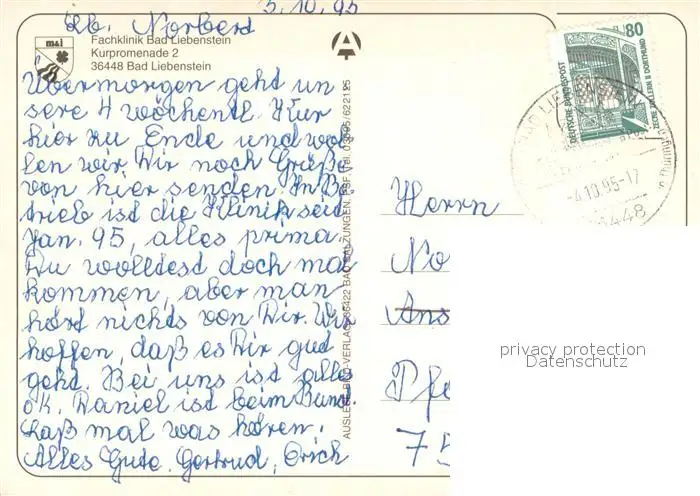 3.10.95
Lb. Norbert
m&i
Fachklinik Bad Liebenstein
Kurpromenade 2
36448 Bad Liebenstein
Übermorgen geht un
sere 4 wöchentl. Kur
hier zu Ende und wol
len wir Dir noch Grüße
von hier senden. In Be
trieb ist die Klinik seit
Jan. 95, alles prima.
Du wolltest doch mal
kommen, aber man
hört nichts von Dir. Wir
hoffen, daß es Dir gut
geht. Bei uns ist alles
ok. Daniel ist beim Bund.
Laß mal was hören.
Alles Gute. Gertrud, Erich
AUSLESE-BILD-VERLAG, 36422 BAD SALZUNGEN, PSF, Tel. 03695/622125
80
DEUTSCHE BUNDESPOST
ZECHE ZOLLERN II DORTMUND
BAD LIEBEN
-4.10.95-17
36448
Herrn
No
Ans
Pfe
75
privacy protection
Datenschutz